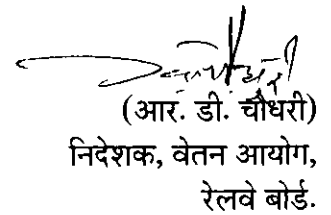 (आर. डी. चौधरी)
निदेशक, वेतन आयोग,
रेलवे बोर्ड.